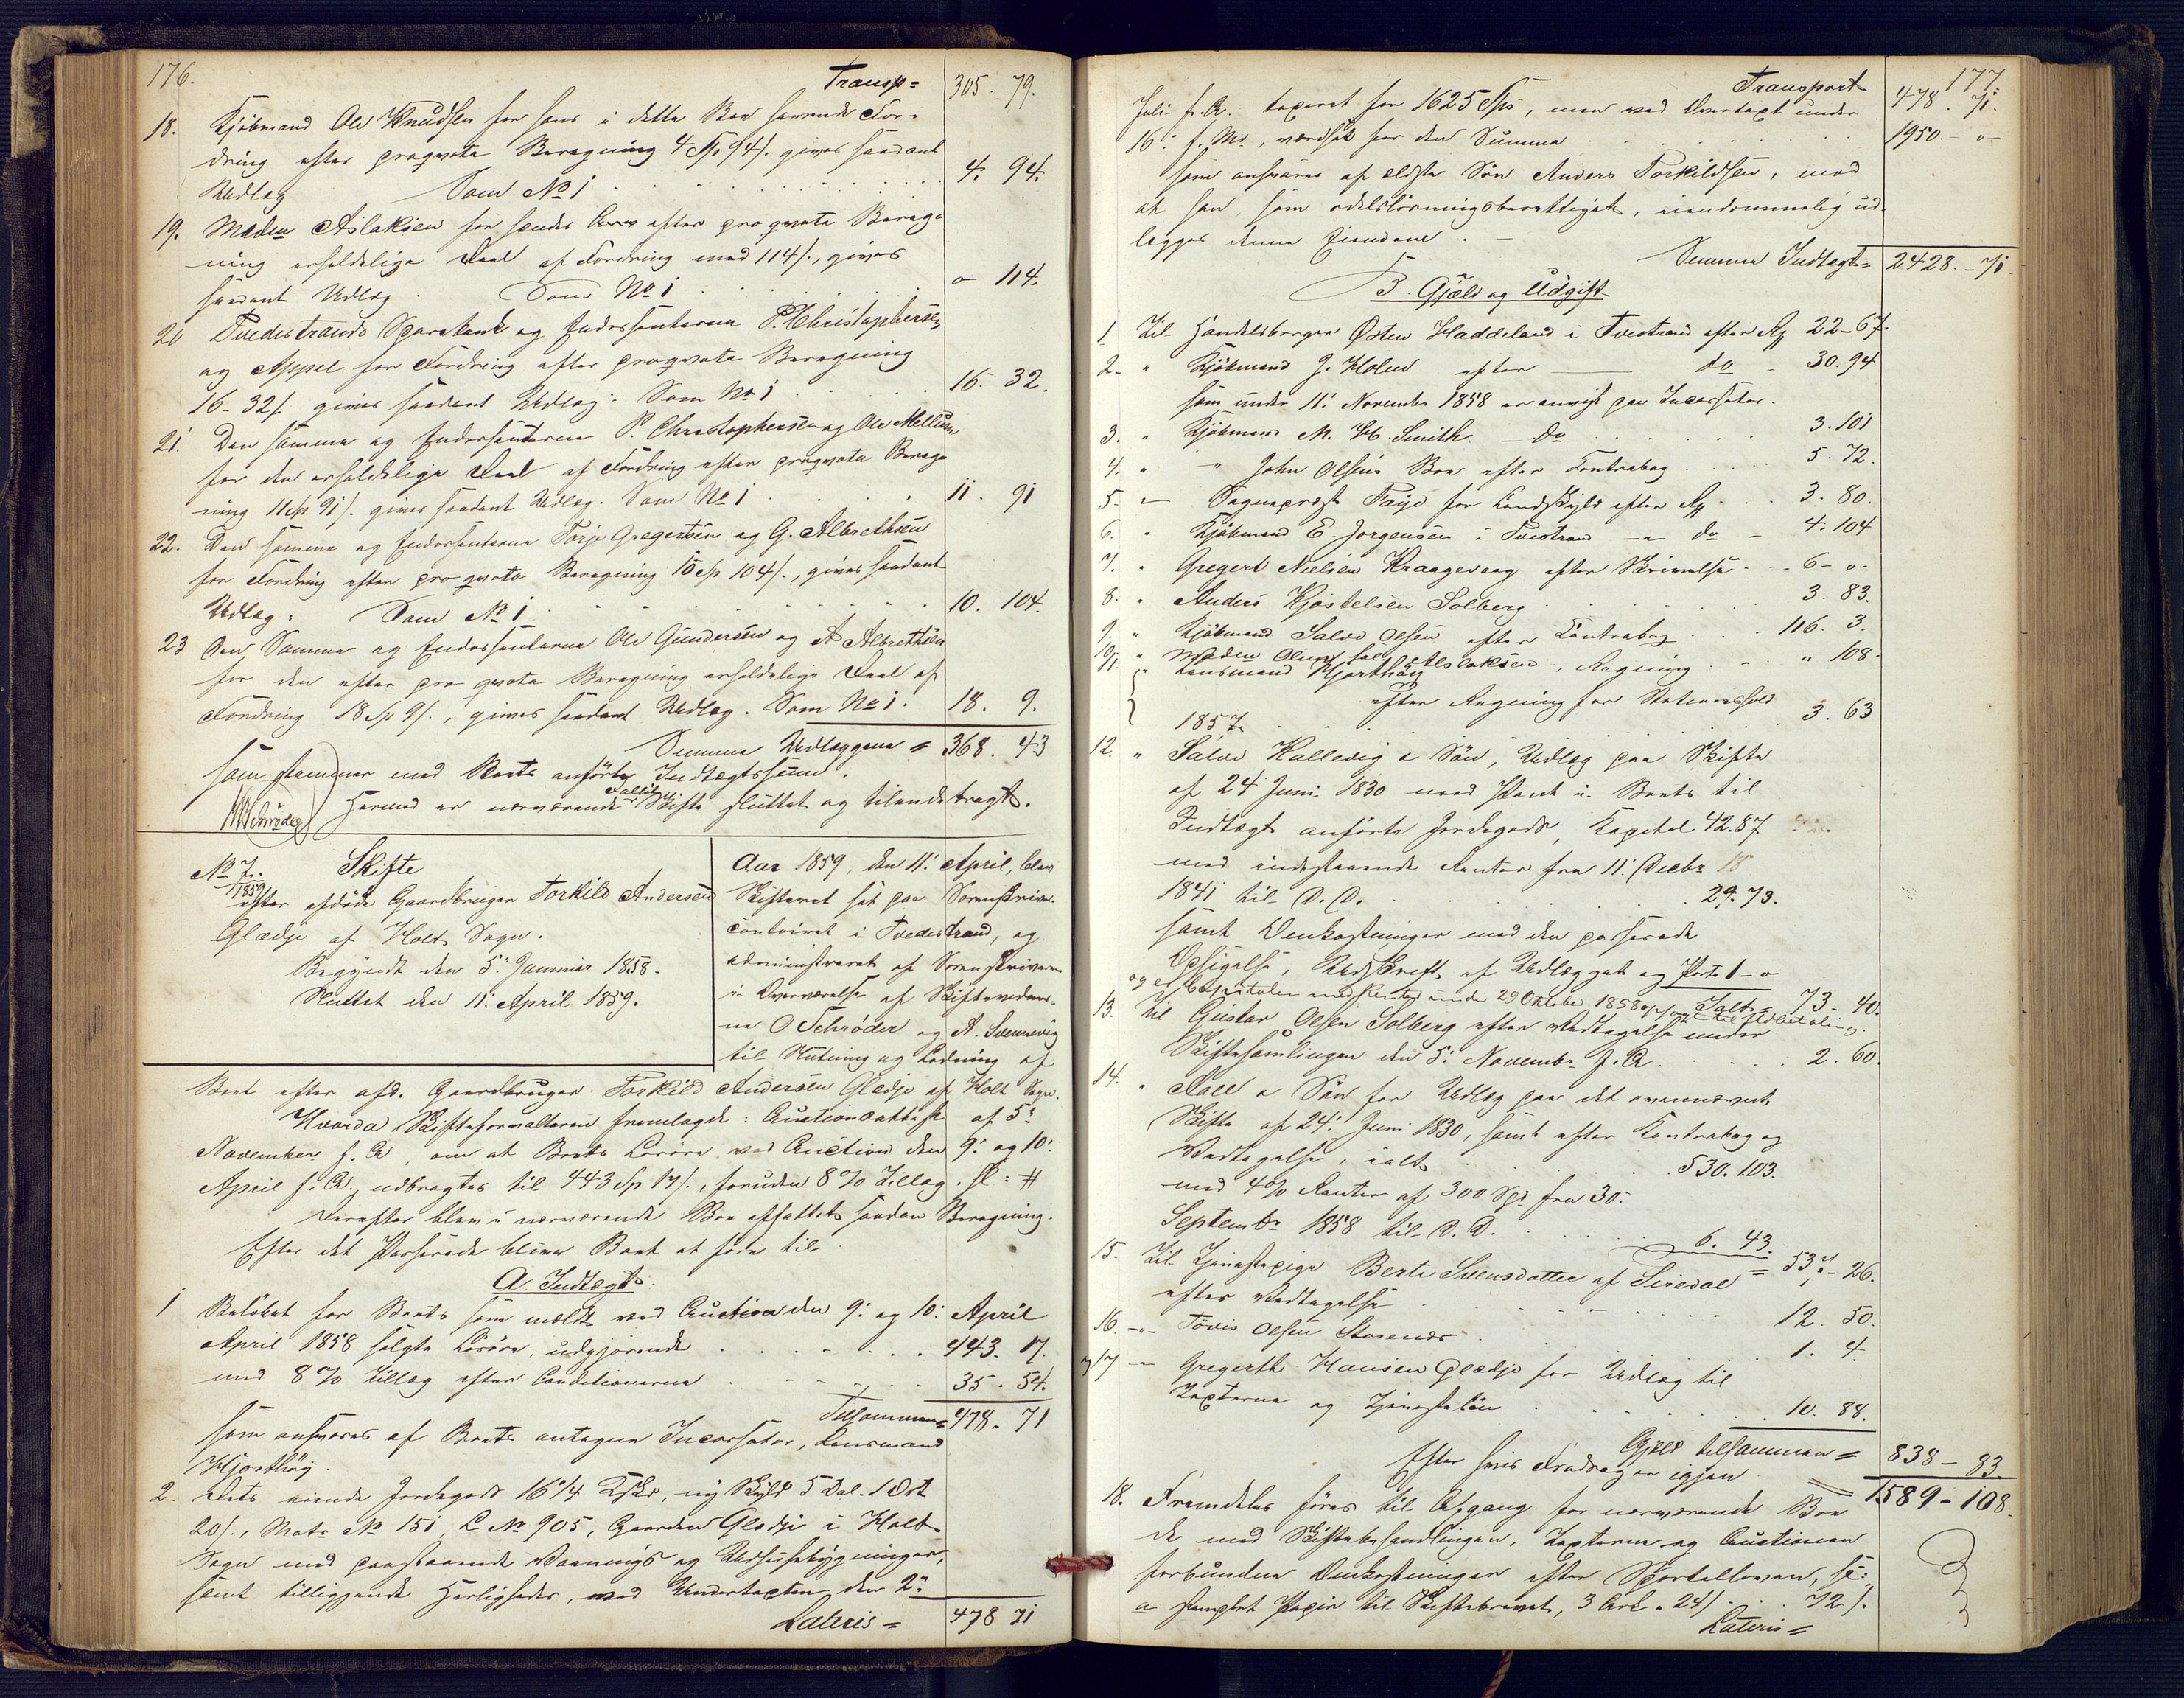 176.
Transp= 305. 79.
18. Kjøbmand Ole Knudsen for hans i dette Boe havende For-
dring efter proqvota Beregning 4 Sp 94 s. gives saadant
Udlæg Som No 1 4. 94.
19. Maden Aslaksen for hendes efter proqvota Bereg-
ning erholdelige Deel af Fordring med 114 s., gives
saadant Udlæg. Som No 1 o 114.
20 Tvedestrands Sparebank og Endossenterne P. Christophersen
og Appel for Fordring efter proqvota Beregning
16-32 s gives saadant Udlæg. Som No 1 16. 32.
21. Den samme og Endossenterne P. Christophersen og Ole Mellum
for den erholdelige Deel af Fordring efter proqvota Bereg-
ning 11 Sp 91 s. gives saadant Udlæg. Som No 1 11. 91
22. Den samme og Endossenterne Torje Gregertsen og G. Albrethsen
for Fordring efter proqvota Beregning 10 Sp 104 s., gives saadant
Udlæg: Som No 1 10. 104.
23 Den Samme og Endossenterne Ole Gundersen og A Albrethsen
for den efter pro qvota Beregning erholdelige Deel af
Fordring 18 Sp 9 s., gives saadant Udlæg. Som No 1. 18. 9.
Summa Udlæggene = 368. 43
som stemmer med Boets anførte Indtægtssum.
Hermed er nærværende Fallit Skifte sluttet og tilendebragt.
Schrøder
No 7. 1859 Skifte
efter afdøde Gaardbruger Torkild Andersen
Glædje af Holt Sogn.
Begyndt den 5: Januar 1858.
Sluttet den 11: April 1859.
Aar 1859, den 11: April, blev
Skifteret sat paa Sorenskriver-
contoiret i Tvedestrand, og
administreret af Sorenskriveren
i Overværelse af Skiftevidner-
ne O Schrøder og A. Svennevig
til Slutning og Lodning af
Boet efter afd. Gaardbruger Torkild Andersen Glædje af Holt Sogn.
Hvorda Skifteforvalteren fremlagde: Auctionsattest af 5:
November f. A, om at Boets Løsøre ved Auction den 9: og 10:
April f. A. udbragtes til 443 Sp 17 s., foruden 8 % Tillæg. sl: #
Derefter blev i nærværende Boe affattet saadan Beregning.
Efter det Passerede bliver Boet at føre til
A Indtægt.
1 Beløbet for Boets som meldt ved Auction den 9: og 10: April
April 1858 solgte Løsøre, udgjørende 443. 17.
med 8 % Tillæg efter Conditionerne 35. 54.
Tilsammen = 478. 71
som ansvares af Boets antagne Incassator, Lensmand
Hjorthøy.
2. Dets eiende Jordegods 16 1/4 , ny Skyld 5 Dal. 1 Ort
20 s., Matr No 151 L No 905, Gaarden Glædje i Holt
Sogn med paastaaende Vaanings og Udhusebygninger,
samt tilliggende Herligheder, ved Undertaxten den 2:
Lateris = 478 71
177
Transport 478. 71.
Juli f. A. taxeret for 1625 Sps, men ved Overtaxt under
16: f. M., værdsat for den Summa 1950. -o-
som ansvares af ældste Søn Anders Torkildsen, mod
at han som odelsløsningsberettiget, eiendommelig ud-
lægges denne Eiendom.
Summa Indtægt = 2428. - 71.
B. Gjæld og Udgift
1 Til Handelsborger Østen Haddeland i Tvestrand efter Rg 22-67.
2. " Kjøbmand J. Holm efter do - 30. 94
som under 11: November 1858 er anvist paa Incassator.
3. " Kjøbmand N. H. Smith - do 3. 101
4. " " John Olsens Boe efter Contrabog 5. 72.
5. " Sognepræst Faye for Landskyld efter Rg 3. 80.
6. " Kjøbmand E. Jørgensen i Tvestrand - " do - 4. 104
7. " Gregert Nielsen Kraagevaag efter Skrivelse 6 - o-
8. " Anders Kjøstelsen Solberg 3. 83.
9. " Kjøbmand Salve Olsen efter Contrabog 116. 3.
10 " Maden Aslaksen, Regning " 108.
11 " Lensmand Hjorthøy
efter Regning for
1857 3. 63
12. " Salve Kallevig & Søn, Udlæg paa Skifte
af 24 Juni 1830 med Pant i Boets til
Indtægt anførte Jordegods, Kapital 42.87
med indestaaende Renter fra 11: Decbr
1841 til D. D. 29. 73.
samt Omkostninger med den passerede
Opsigelse, Udskrift af Udlægget og Porto 1-o
og er Capitalen med Renter under 29 Oktober 1858 opsagt til Udbetaling. Ialt = 73 - 40.
13. til Gustav Olsen Solberg efter Vedtagelse under
Skiftesamlingen den 5: Novembr f. A. 2. 60.
14. " Aall & Søn for Udlæg paa det ovennævnte
Skifte af 24: Juni 1830, samt efter Contrabog og
Vedtagelse, ialt 530. 103.
med 4 % Renter af 300 Spd fra 30:
Septembr 1858 til D. D. 6. 43.
= 537 - 26.
15. Til Tjenestepige Berte Svensdatter af Siredal
efter Vedtagelse 12. 50.
16. - " - Tovis Olsen Storenæs 1. 4.
og 17 - " Gregerth Hansen Glædje for Udlæg til
Taxterne og Tjenesteløn 10. 88.
Gjæld tilsammen = 838 - 83.
Efter hvis Fradrag er igjen = 1589 - 108.
18. Fremdeles føres til Afgang for nærværende Boe
de med Skiftebehandlingen, Taxterne og Auctionen
forbundne Omkostninger efter Sportelloven, s:
a stemplet Papir til Skiftebrevet, 3 Ark a 24 s 72 s.
Lateris =